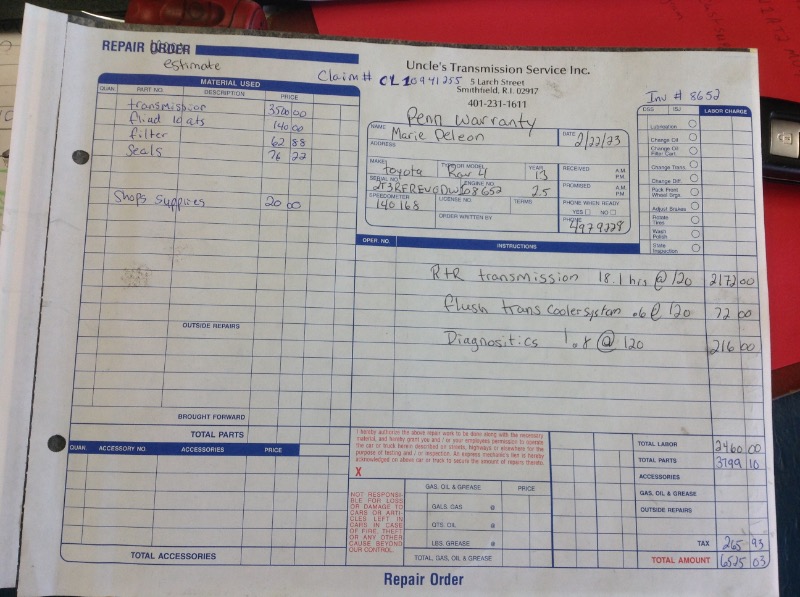 REPAIR ORDER
estimate
Claim # CL10941255
Uncle's Transmission Service Inc.
5 Larch Street
Smithfield, R.I. 02917
401-231-1611
Inv # 8652
Penn Warranty
MATERIAL USED
QUAN. PART NO. DESCRIPTION PRICE
transmission 3500 00
fliud 10qts 140 00
filter 62 88
Seals 76 22
Shops supplies 20 00
OUTSIDE REPAIRS
BROUGHT FORWARD
TOTAL PARTS
NAME Marie Deleon DATE 2/22/23
ADDRESS
MAKE toyota TYPE OR MODEL Rav 4 YEAR 13 RECEIVED A.M. P.M.
SERIAL NO. ENGINE NO. 2.5 PROMISED A.M. P.M.
SPEEDOMETER 140168 LICENSE NO. TERMS PHONE WHEN READY
YES NO
ORDER WRITTEN BY PHONE 4979228
LABOR CHARGE
Lubrication
Change Oil
Change Oil Filter Cart.
Change Trans.
Change Diff.
Pack Front Wheel Brgs.
Adjust Brakes
Rotate Tires
Wash Polish
State Inspection
OPER. NO. INSTRUCTIONS
R+R transmission 18.1 hrs @ 120 2172 00
flush trans cooler system .6 @ 120 72 00
Diagnositics 1.8 @ 120 216 00
I hereby authorize the above repair work to be done along with the necessary
material, and hereby grant you and / or your employees permission to operate
the car or truck herein described on streets, highways or elsewhere for the
purpose of testing and / or inspection. An express mechanic's lien is hereby
acknowledged on above car or truck to secure the amount of repairs thereto.
X
QUAN. ACCESSORY NO. ACCESSORIES PRICE
TOTAL ACCESSORIES
NOT RESPONSI-
BLE FOR LOSS
OR DAMAGE TO
CARS OR ARTI-
CLES LEFT IN
CARS IN CASE
OF FIRE, THEFT
OR ANY OTHER
CAUSE BEYOND
OUR CONTROL.
GAS, OIL & GREASE PRICE
GALS. GAS @
QTS. OIL @
LBS. GREASE @
TOTAL, GAS, OIL & GREASE
TOTAL LABOR 2460 00
TOTAL PARTS 3799 10
ACCESSORIES
GAS, OIL & GREASE
OUTSIDE REPAIRS
TAX 265 93
TOTAL AMOUNT 6525 03
Repair Order